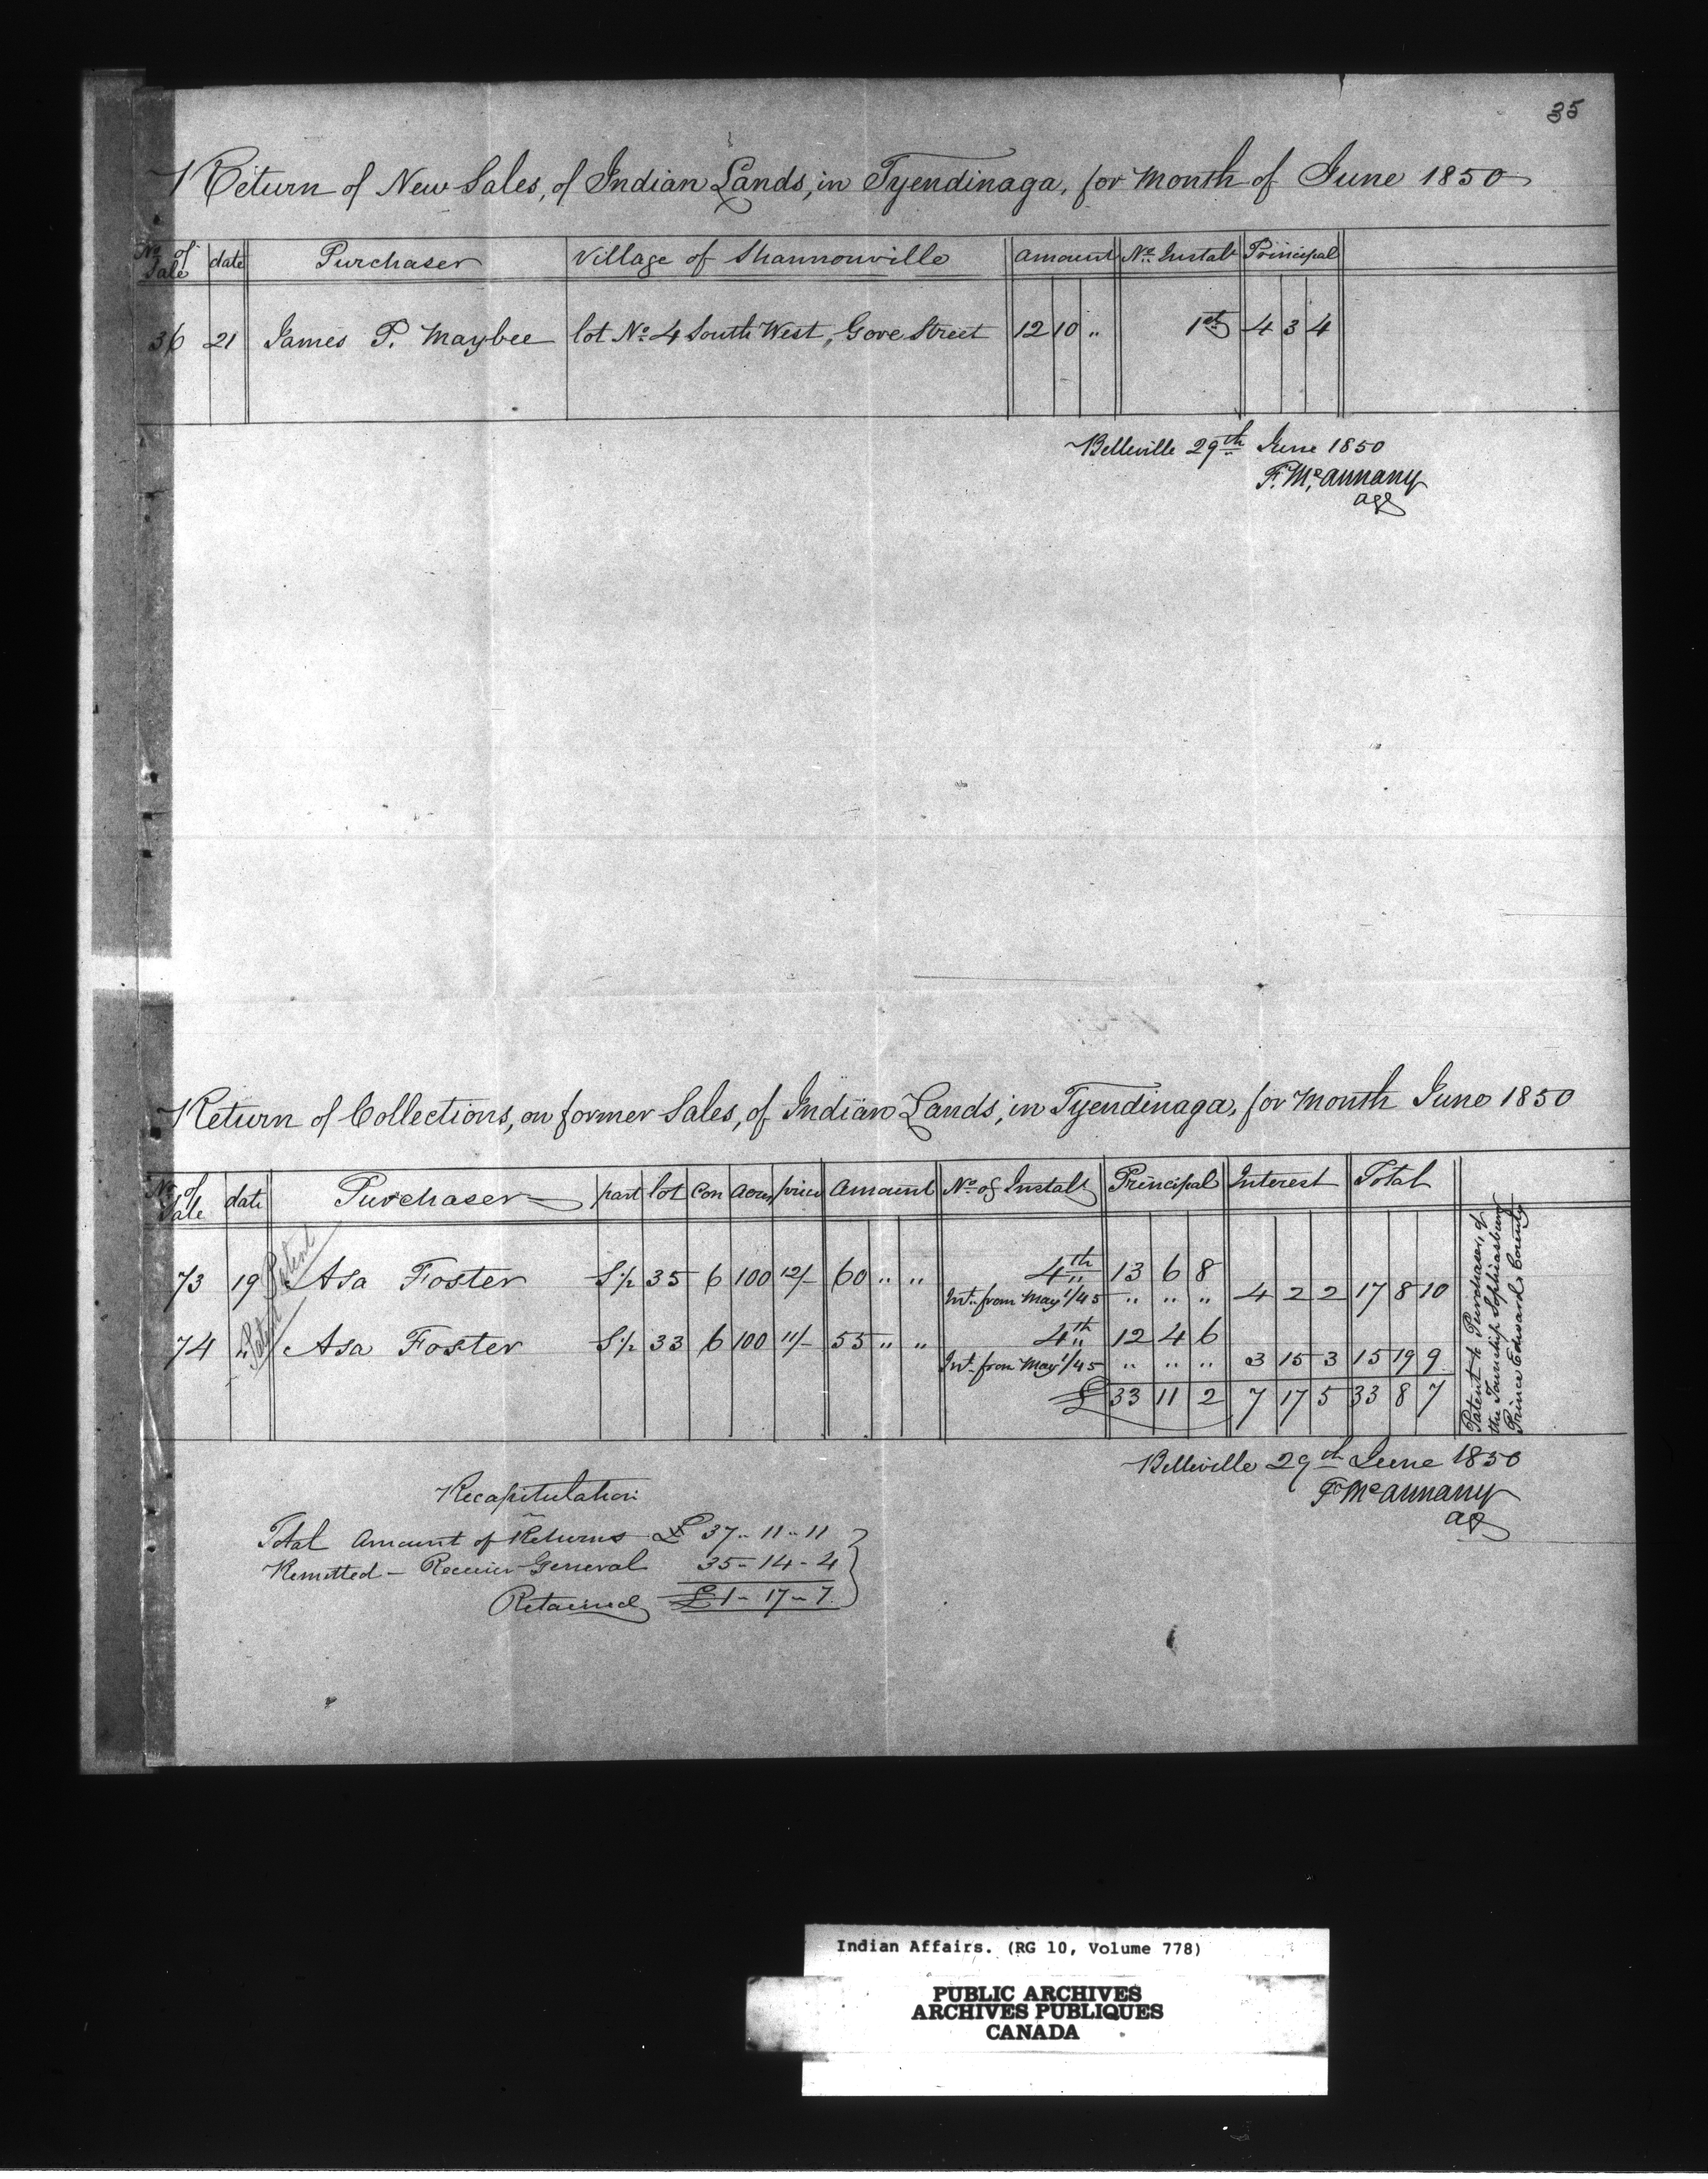 35
Return of New Sales, of Indian Lands, in Tyendinaga, for Month of June 1850
No of Sale date Purchaser Village of Shannonville Amount No. Instalt Principal
36 21 James P. Maybee lot No. 4 South West, Gore Street 12 10 " 1st 4 3 4
Belleville 29th June 1850
F. McAnnany
agt
Return of Collections, on former Sales, of Indian Lands, in Tyendinaga, for Month June 1850
No of Sale date Purchaser part lot Con Acres price Amount No. of Instalt Principal Interest Total
73 19 Patent Asa Foster S ½ 35 6 100 12/- 60 " " 4th 13 6 8
Int. from May 1/45 " " " 4 2 2 17 8 10
74 " Patent Asa Foster S ½ 33 6 100 11/- 55 " " 4th 12 4 6
Int. from May 1/45 " " " 3 15 3 15 19 9
£ 33 11 2 7 17 5 33 8 7
Patent to Purchaser, of
the Township Sophiasburg
Prince Edward County
Belleville 29th June 1850
F McAnnany
agt
Recapitulation
Total Amount of Returns £ 37 - 11 - 11
Remitted - Receiver General 35 - 14 - 4
Retained £ 1 - 17 - 7
Indian Affairs. (RG 10, Volume 778)
PUBLIC ARCHIVES
ARCHIVES PUBLIQUES
CANADA